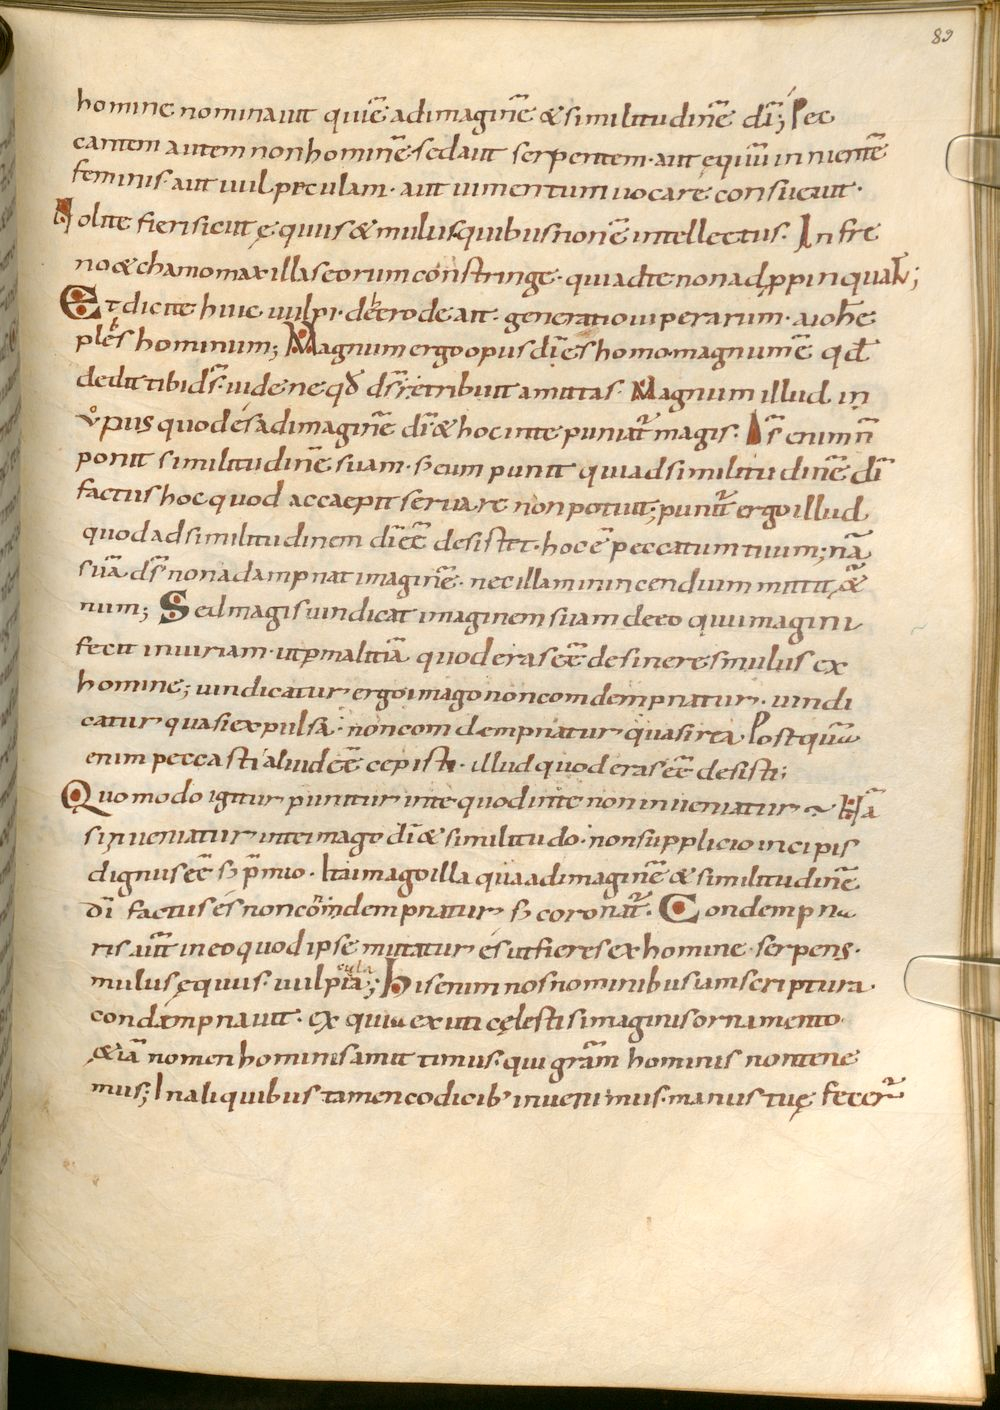 89
homine nominauit qui ē ad imaginē & similitudinē dī; Pec
cantem autem non hominē· sed aut serpentem· aut ęquū innientē
feminis· aut uulpeculam· aut iumentum uocare consueuit·
Nolite fieri sicut ęquus & mulus quibus non ē intellectus· In fre
no & chamo maxillas eorum constringe· qui ad te non adp̱pinquant;
Et dicite huic uulpi· de herode ait· generatio uiperarum· a iohe
ples hominum; Magnum ergo opus dī es homo· magnum ē qđ
dedit tibi ds̄· uide ne qđ ds̄ retribuit amittas· Magnum illud in
opus quod es ad imaginē dī & hoc in te punitur magis· Ds̄ enim n̄
ponit similitudinē suam· s; cum punit quia ad similitudinē dī
factus hoc quod accaepit seruare non potuit; punit̄ ergo illud
quod ad similitudinem dī eē desistit· hoc ē peccatum tuum; nā
suā ds̄ non adampnat imaginē· nec illam in incendium mittit æt̄
num; Sed magis uindicat imaginem suam de eo qui imagini
fecit iniuriam· ut p malitiā quod eras eē desineres mulus ex
homine; uindicatur ergo imago non comdempnatur· uindi
catur quasi expulsa· non comdempnatur quasi rea Postquā
enim peccasti aliud eē cepisti· illud quod eras eē desisti;
Quomodo igitur punitur in te quod in te non inueniatur· Nā
si inueniatur in te imago dī & similitudo· non supplicio incipis
dignus eē s; p̄mio· Ita imago illa qua ad imaginē & similitudinē
dī factus és non condempnatur s; coronat̄· Condempna
ris aūt in eo quod ipse mittatur és ut fieres ex homine· serpens·
mulus ęquus· uulpicula; His enim nos nominibus iam scriptura·
condempnauit· ex quia exuti cęlestis imaginis ornamento·
& iā nomen hominis amittimus· qui grām hominis non tene
mus; In aliquibus tamen codicib' inuenimus· manus tuę fecer̄